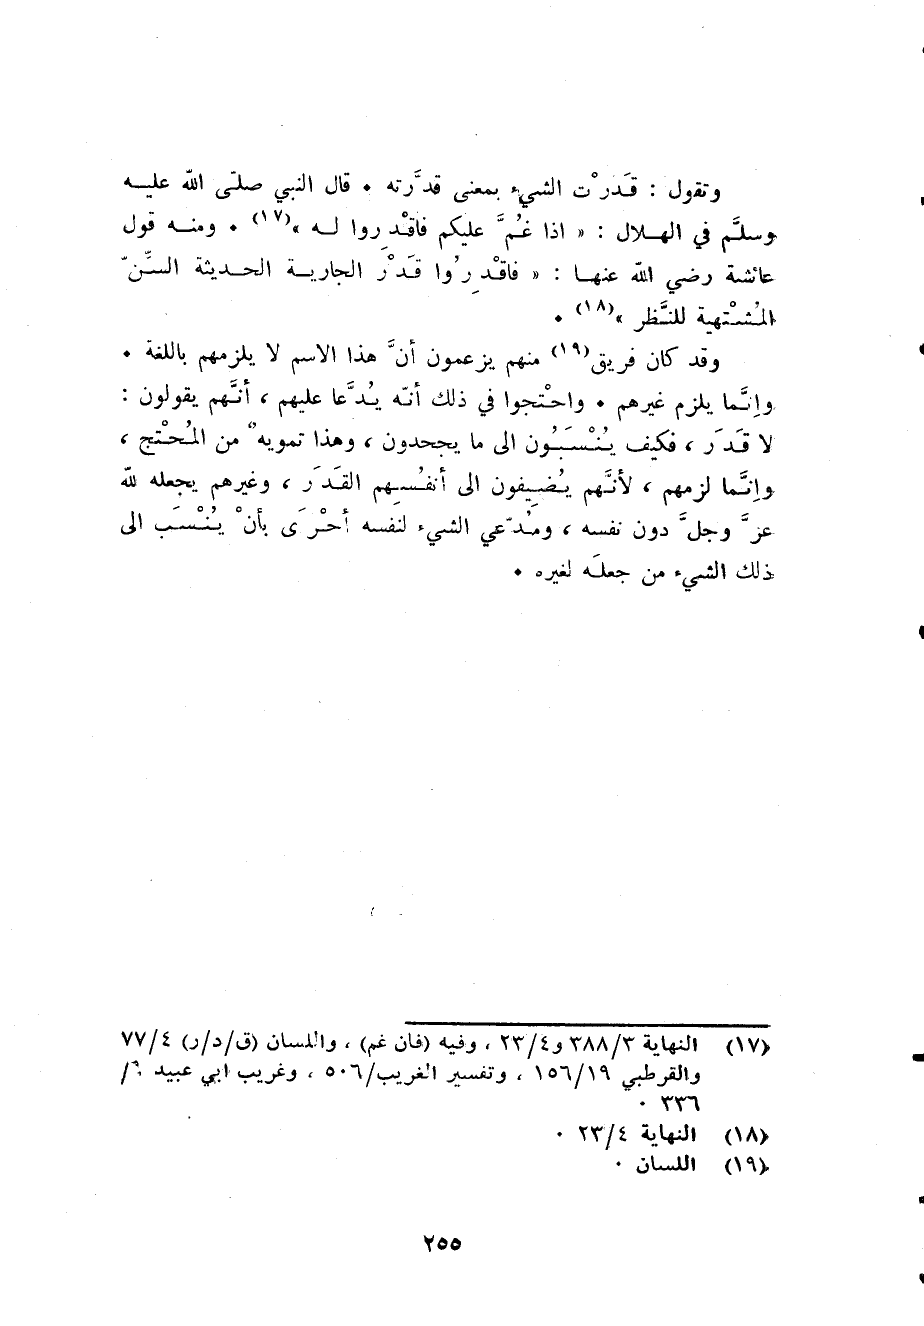 وتقول : قَدَرْت الشيء بمعنى قدَّرته • قال النبي صلّى الله عليه
وسلَّم في الهلال : « اذا غُمَّ عليكم فاقْدِروا له »(١٧) • ومنه قول
عائشة رضي الله عنها : « فاقْدِرُوا قَدْرَ الجارية الحديثة السِّنّ
المُشْتهية للنَّظر »(١٨) •
وقد كان فريق(١٩) منهم يزعمون أنَّ هذا الاسم لا يلزمهم باللغة •
وانَّما يلزم غيرهم • واحْتجوا في ذلك أنّه يُدَّعا عليهم ، أنَّهم يقولون :
لا قَدَر ، فكيف يُنْسَبُون الى ما يجحدون ، وهذا تمويه ٌ من المُحْتج ،
وانَّما لزمهم ، لأنَّهم يُضيِفون الى أنفُسِهم القَدَرَ ، وغيرهم يجعله لله
عزَّ وجلَّ دون نفسه ، ومُدّعي الشيء لنفسه أحْرَى بأنْ يُنْسَب الى
ذلك الشيء من جعلَه لغيره •
(١٧) النهاية ٣٨٨/٣ و٢٣/٤ ، وفيه (فان غم) ، واللسان (ق/د/ر) ٧٧/٤
والقرطبي ١٥٦/١٩ ، وتفسير الغريب/٥٠٦ ، وغريب ابي عبيد /
٣٣٦ •
(١٨) النهاية ٢٣/٤ •
(١٩) اللسان •
٢٥٥